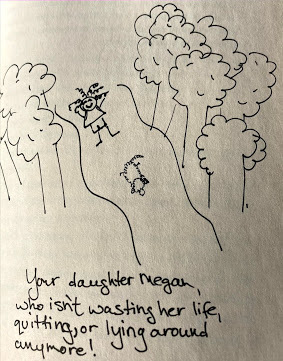 Your daughter Megan,
who isn't wasting her life,
quitting, or lying around
anymore!